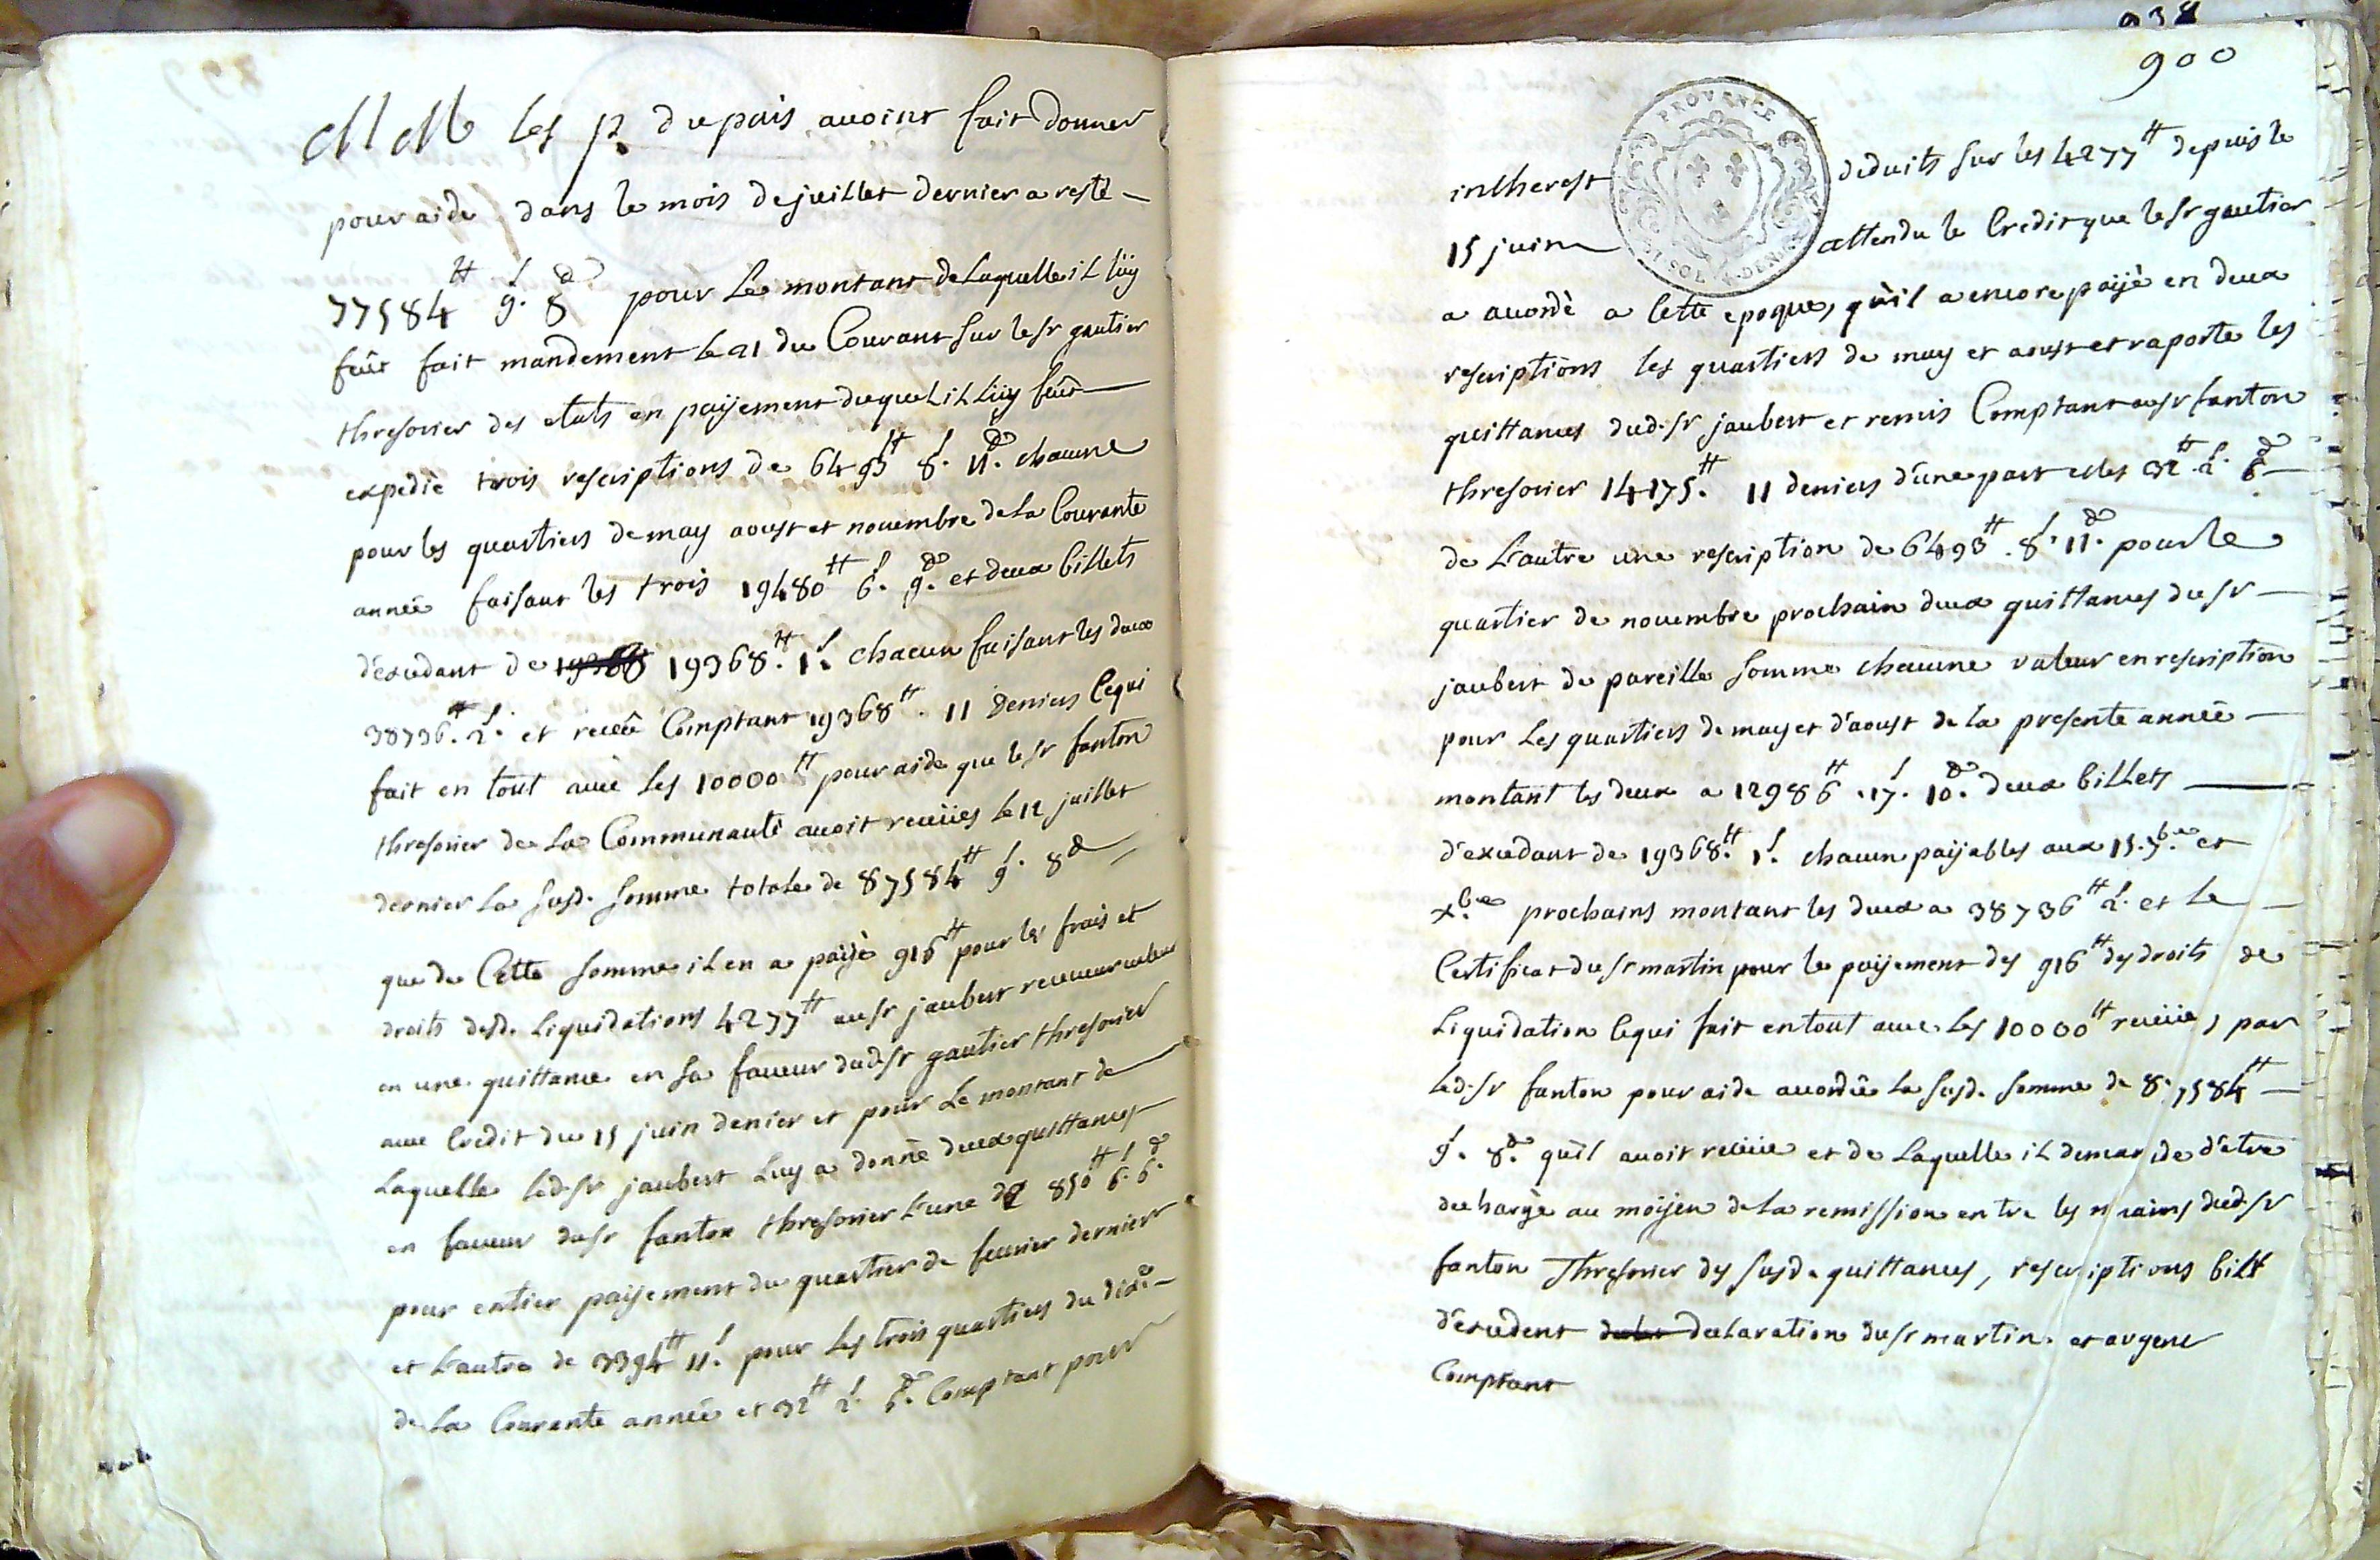 MM les p. du païs avoint fait donner
pour aide dans le mois de juillet dernier a resté
77584ᵗᵗ 9.ˢ 8ᵈ pour le montant de laquelle il lüy
fût fait mandement le 21 du Courant sur le sr gautier
thresorier des etats en paÿement duquel il lüy fût
expedié trois rescriptions de 6493ᵗᵗ 8.ˢ 11.ᵈ chacune
pour les quartiers de may aoust et novembre de la Courante
année faisant les trois 19480ᵗᵗ 6.ˢ 9.ᵈ et deux billets
d'excedant de 19368.ᵗᵗ 1.ˢ chacun faisant les deux
38736.ᵗᵗ 2.ˢ et receû Comptant 19368ᵗᵗ. 11 deniers Cequi
fait en tout avec les 10000ᵗᵗ pour aide que le sr fanton
thresorier de la Communauté avoit receües le 12 juillet
dernier la susd. somme totale de 87584ᵗᵗ 9.ˢ 8ᵈ
que de Cette somme il en a paÿé 916ᵗᵗ pour les frais et
droits desd. Liquidations 4277ᵗᵗ au sr jaubert receveur
en une quittance en sa faveur dud. sr gautier thresorier
avec Credit du 15 juin denier et pour le montant de
Laquelle led. sr jaubert Luy a donné deux quittances
en faveur du sr fanton thresorier l'une de 850ᵗᵗ 6.ˢ 6.ᵈ
pour entier paÿement du quartier de fevrier dernier
et l'autre de 3394ᵗᵗ 11.ˢ pour les trois quartiers du
de la Courante année et 32ᵗᵗ 2.ˢ 6.ᵈ Comptant pour
938
900
PROVENCE
intherest deduits sur les 4277ᵗᵗ depuis le
15 juin attendu le Credit que le sr gautier
a accordé a Cette epoque, qu'il a encore païjé en deux
rescriptions les quartiers de may et aoust et raporte les
quittances dud. sr jaubert et remis Comptant au sr fanton
thresorier 14175.ᵗᵗ 11 deniers d'une part et les 32ᵗᵗ 2.ˢ 6.ᵈ
de L'autre une rescription de 6493ᵗᵗ. 8.ˢ 11.ᵈ pour le
quartier de novembre prochain deux quittances du sr
jaubert de pareille somme chacune valeur en rescription
pour Les quartiers de may et d'aoust de la presente année
montant les deux a 12986ᵗᵗ. 17.ˢ 10.ᵈ deux billets
d'excedant de 19368.ᵗᵗ 1.ˢ chacun paijables aux 15. 7.ᵇʳᵉ et
x.ᵇʳᵉ prochains montant les deux a 38736ᵗᵗ 2.ˢ et le
Certificat du sr martin pour le paijement des 916ᵗᵗ des droits de
Liquidation Cequi fait en tout avec les 10000ᵗᵗ receües par
led. sr fanton pour aide accordée la susd. somme de 87584ᵗᵗ
9.ˢ 8.ᵈ qu'il avoit receüe et de Laquelle il demande d'etre
decharge au moïjen de la remission entre les mains dud. sr
fanton Thresorier des susd. quittances, rescriptions billt
d'excedent declaration du sr martin. et argent
Comptant